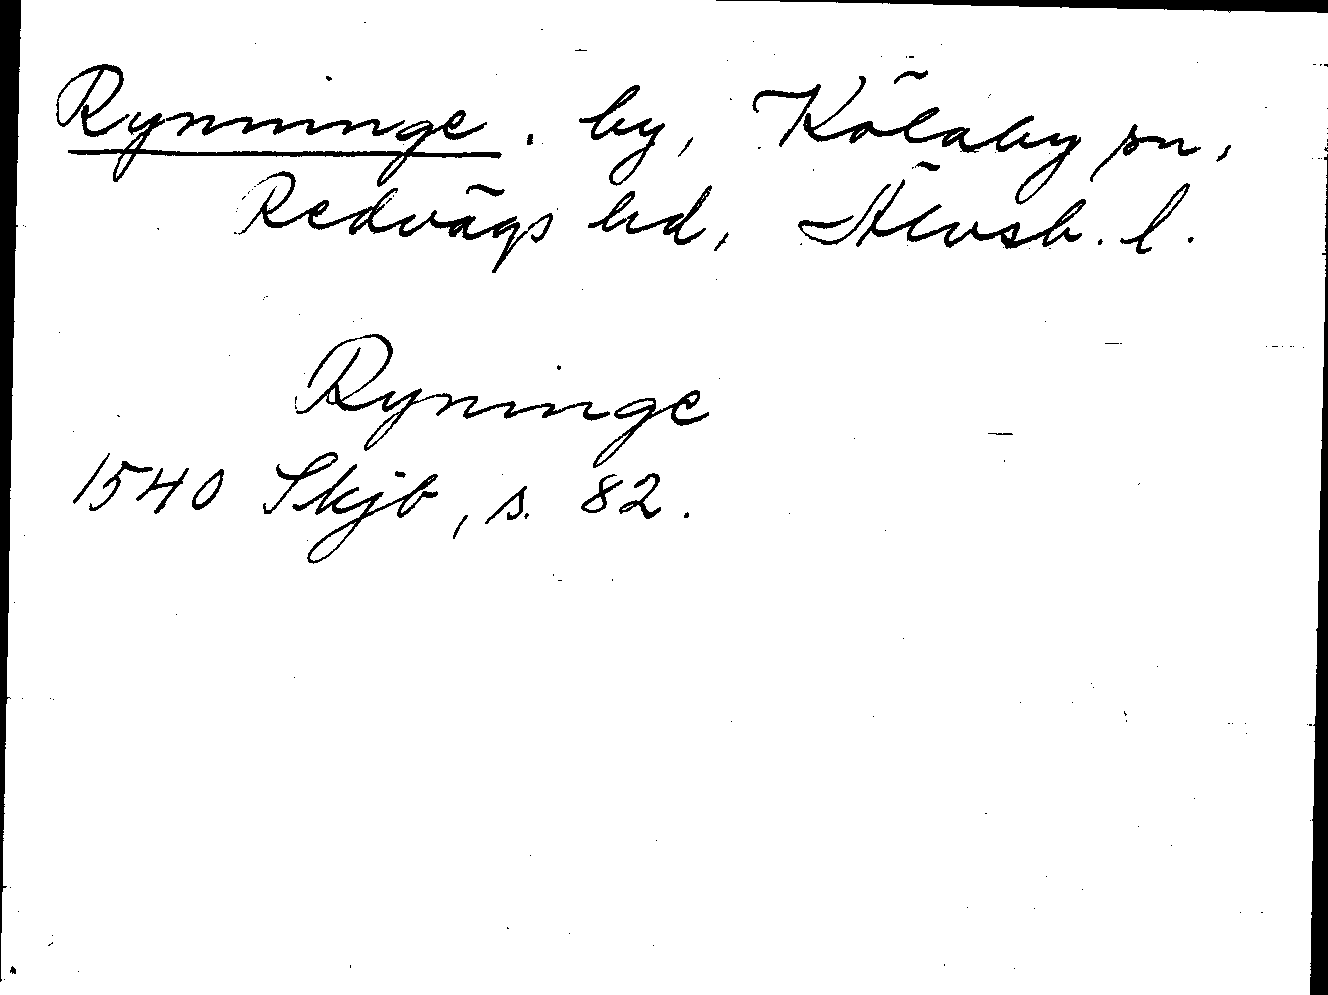 Rynninge. by, Kölaby sn,
Redvägs hd, Älvsb. l.
Ryninge
1540 Skjb, s. 82.